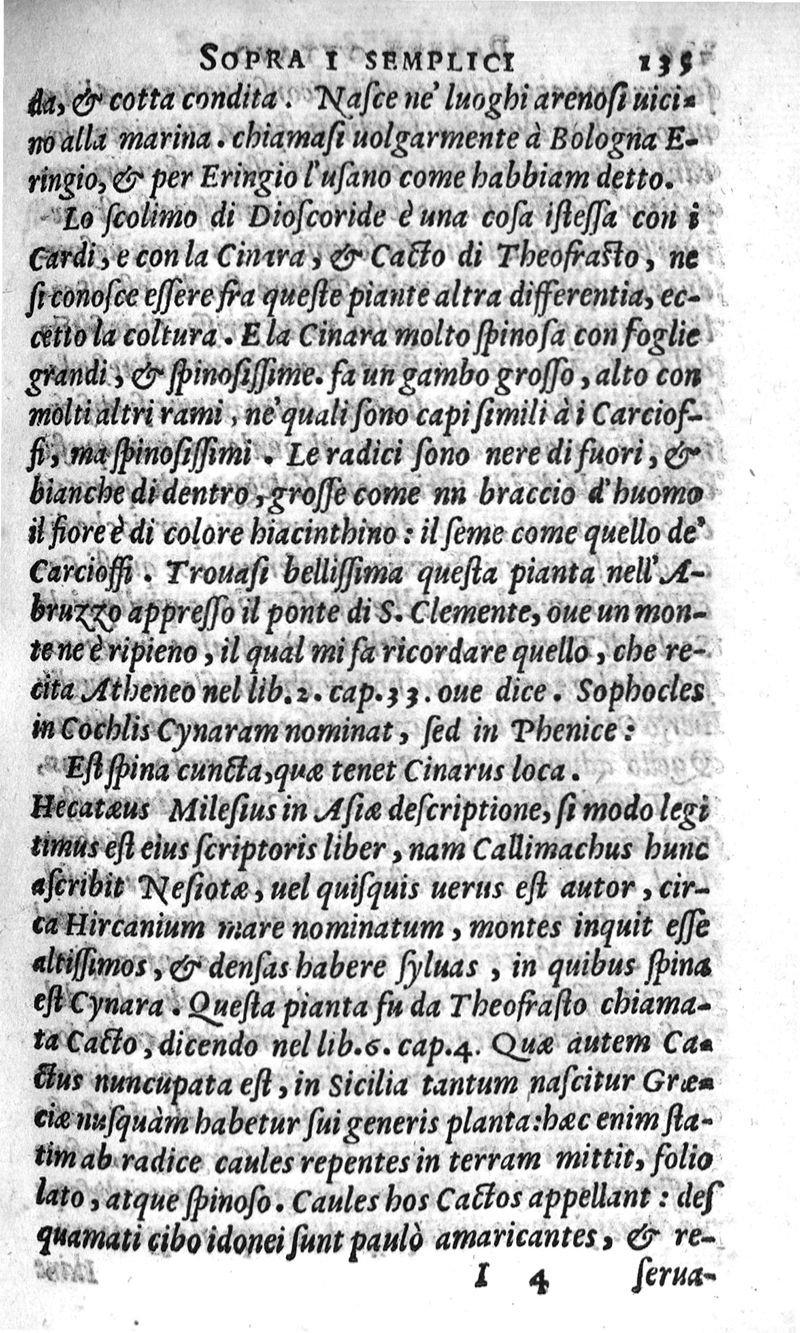 SOPRA I SEMPLICI 135
da, & cotta condita. Naſce ne' luoghi arenoſi uici-
no alla marina. chiamaſi uolgarmente à Bologna E-
ringio, & per Eringio l'uſano come habbiam detto.
Lo ſcolimo di Dioſcoride è una coſa iſteſſa con i
Cardi, e con la Cinara, & Cacto di Theofraſto, ne
ſi conoſce eſſere fra queſte piante altra differentia, ec-
cetto la coltura. E la Cinara molto ſpinoſa con foglie
grandi, & ſpinoſiſſime. fa un gambo groſſo, alto con
molti altri rami, ne' quali ſono capi ſimili à i Carciof-
fi, ma ſpinoſiſſimi. Le radici ſono nere di fuori, &
bianche di dentro, groſſe come nn braccio d'huomo
il fiore è di colore hiacinthino: il ſeme come quello de'
Carcioffi. Trouaſi belliſſima queſta pianta nell' A-
bruzzo appreſſo il ponte di S. Clemente, oue un mon-
te ne è ripieno, il qual mi fa ricordare quello, che re-
cita Atheneo nel lib. 2. cap. 33. oue dice. Sophocles
in Cochlis Cynaram nominat, ſed in Phenice:
Eſt ſpina cuncta, quæ tenet Cinarus loca.
Hecatæus Mileſius in Aſiæ deſcriptione, ſi modo legi
timus eſt eius ſcriptoris liber, nam Callimachus hunc
aſcribit Neſiotæ, uel quiſquis uerus eſt autor, cir-
ca Hircanium mare nominatum, montes inquit eſſe
altiſſimos, & denſas habere ſyluas, in quibus ſpina
eſt Cynara. Queſta pianta fu da Theofraſto chiama-
ta Cacto, dicendo nel lib. 6. cap. 4. Quæ autem Ca-
ctus nuncupata eſt, in Sicilia tantum naſcitur Græ-
ciæ nuſquàm habetur ſui generis planta: hæc enim ſta-
tim ab radice caules repentes in terram mittit, folio
lato, atque ſpinoſo. Caules hos Cactos appellant: deſ
quamati cibo idonei ſunt paulò amaricantes, & re-
I 4 ſerua-